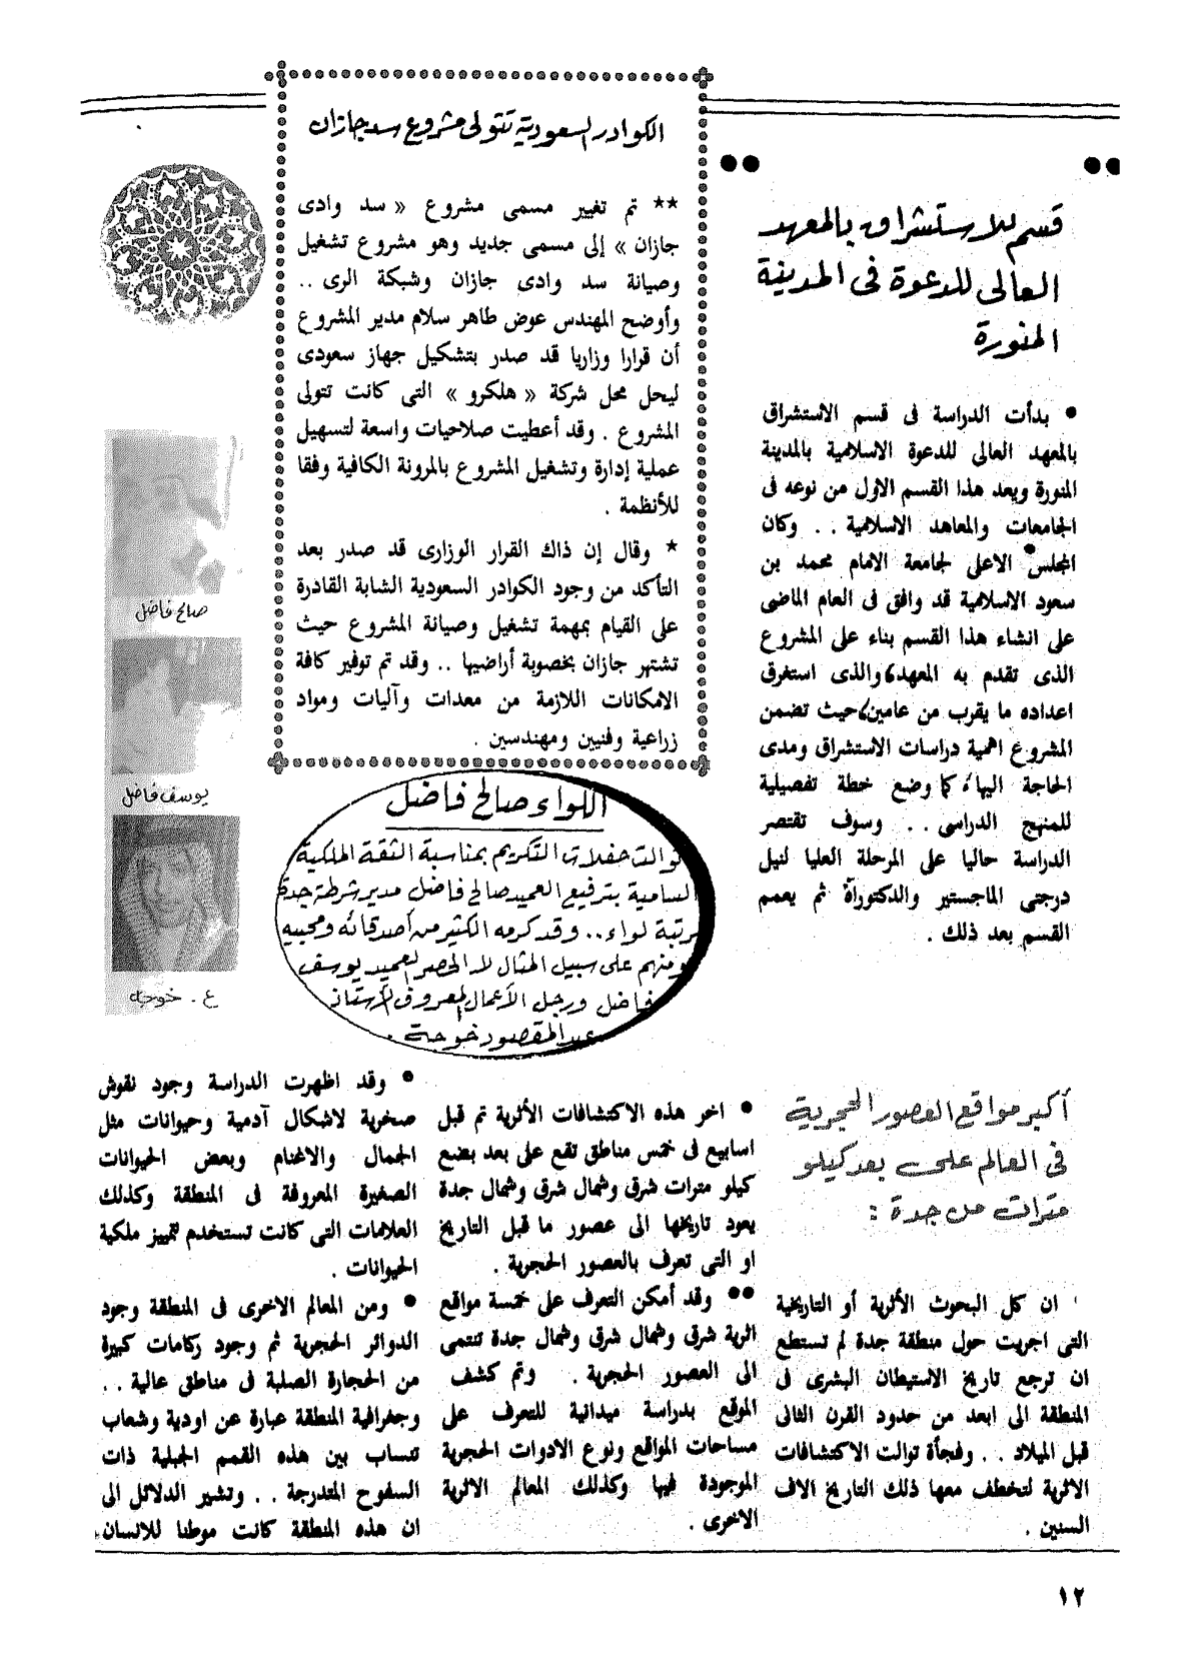 قسم للاستشراق بالمعهد
العالى للدعوة فى المدينة
المنورة
● بدأت الدراسة فى قسم الاستشراق
بالمعهد العالى للدعوة الاسلامية بالمدينة
المنورة ويعد هذا القسم الاول من نوعه فى
الجامعات والمعاهد الاسلامية .. وكان
المجلس الاعلى لجامعة الامام محمد بن
سعود الاسلامية قد وافق فى العام الماضى
على انشاء هذا القسم بناء على المشروع
الذى تقدم به المعهد، والذى استغرق
اعداده ما يقرب من عامين، حيث تضمن
المشروع اهمية دراسات الاستشراق ومدى
الحاجة اليها، كما وضع خطة تفصيلية
للمنهج الدراسى .. وسوف تقتصر
الدراسة حاليا على المرحلة العليا لنيل
درجتى الماجستير والدكتوراة ثم يعمم
القسم بعد ذلك .
الكوادر السعودية تتولى مشروع سد جازان
** تم تغيير مسمى مشروع « سد وادى
جازان » إلى مسمى جديد وهو مشروع تشغيل
وصيانة سد وادى جازان وشبكة الرى ..
وأوضح المهندس عوض طاهر سلام مدير المشروع
أن قرارا وزاريا قد صدر بتشكيل جهاز سعودى
ليحل محل شركة « هلكرو » التى كانت تتولى
المشروع . وقد أعطيت صلاحيات واسعة لتسهيل
عملية إدارة وتشغيل المشروع بالمرونة الكافية وفقا
للأنظمة .
* وقال إن ذاك القرار الوزارى قد صدر بعد
التأكد من وجود الكوادر السعودية الشابة القادرة
على القيام بمهمة تشغيل وصيانة المشروع حيث
تشتهر جازان بخصوبة أراضيها .. وقد تم توفير كافة
الامكانات اللازمة من معدات وآليات ومواد
زراعية وفنيين ومهندسين .
صالح فاضل
يوسف فاضل
ع . خوجه
اللواء صالح فاضل
توالت حفلات التكريم بمناسبة الثقة الملكية
السامية بترفيع العميد صالح فاضل مدير شرطة جدة
لرتبة لواء .. وقد كرمه الكثير من أصدقائه ومحبيه
ومنهم على سبيل المثال لا الحصر العميد يوسف
فاضل ورجل الأعمال المعروف الأستاذ
عبد المقصود خوجة .
أكبر مواقع العصور الحجرية
فى العالم على بعد كيلو
مترات من جدة :
ان كل البحوث الأثرية أو التاريخية
التى اجريت حول منطقة جدة لم تستطع
ان ترجع تاريخ الاستيطان البشرى فى
المنطقة الى ابعد من حدود القرن الثانى
قبل الميلاد .. وفجأة توالت الاكتشافات
الاثرية لتخطف معها ذلك التاريخ الاف
السنين .
● اخر هذه الاكتشافات الأثرية تم قبل
اسابيع فى خمس مناطق تقع على بعد بضع
كيلو مترات شرق وشمال شرق وشمال جدة
يعود تاريخها الى عصور ما قبل التاريخ
او التى تعرف بالعصور الحجرية .
●● وقد أمكن التعرف على خمسة مواقع
اثرية شرق وشمال شرق وشمال جدة تنتمى
الى العصور الحجرية . وتم كشف
الموقع بدراسة ميدانية للتعرف على
مساحات المواقع ونوع الادوات الحجرية
الموجودة فيها وكذلك المعالم الاثرية
الاخرى .
● وقد اظهرت الدراسة وجود نقوش
صخرية لاشكال آدمية وحيوانات مثل
الجمال والاغنام وبعض الحيوانات
الصغيرة المعروفة فى المنطقة وكذلك
العلامات التى كانت تستخدم تمييز ملكية
الحيوانات .
● ومن المعالم الاخرى فى المنطقة وجود
الدوائر الحجرية ثم وجود ركامات كبيرة
من الحجارة الصلبة فى مناطق عالية ..
وجغرافية المنطقة عبارة عن اودية وشعاب
تنساب بين هذه القمم الجبلية ذات
السفوح المتدرجة .. وتشير الدلائل الى
ان هذه المنطقة كانت موطنا للانسان
١٢